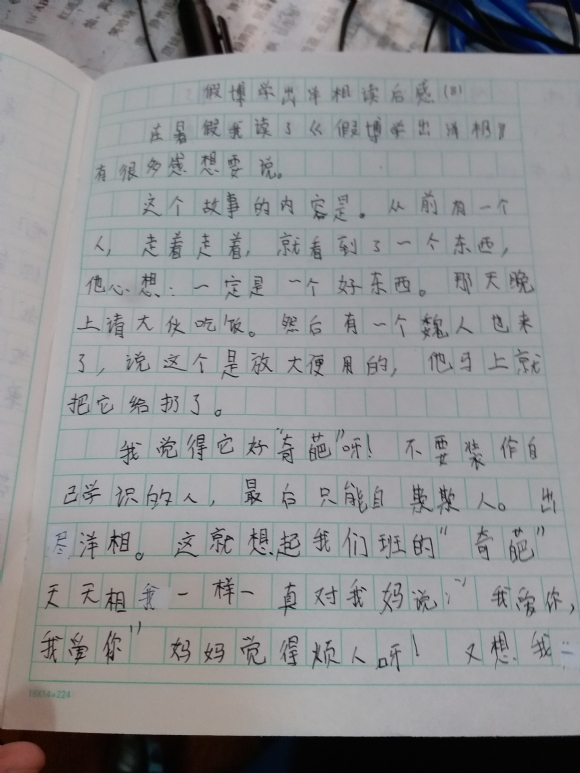 假博学出洋相读后感(8)
在暑假我读了《假博学出洋相》
有很多感想要说。
这个故事的内容是。从前有一个
人,走着走着,就看到了一个东西,
他心想:一定是一个好东西。那天晚
上请大伙吃饭。然后有一个魏人也来
了,说这个是放大便用的,他马上就
把它给扔了。
我觉得它好"奇葩"呀!不要装作自
己学识的人,最后只能自欺欺人。出
尽洋相。这就想起我们班的"奇葩"
天天相我一样一真对我妈说:"我爱你,
我爱你"妈妈觉得烦人呀!又想我
16814=224